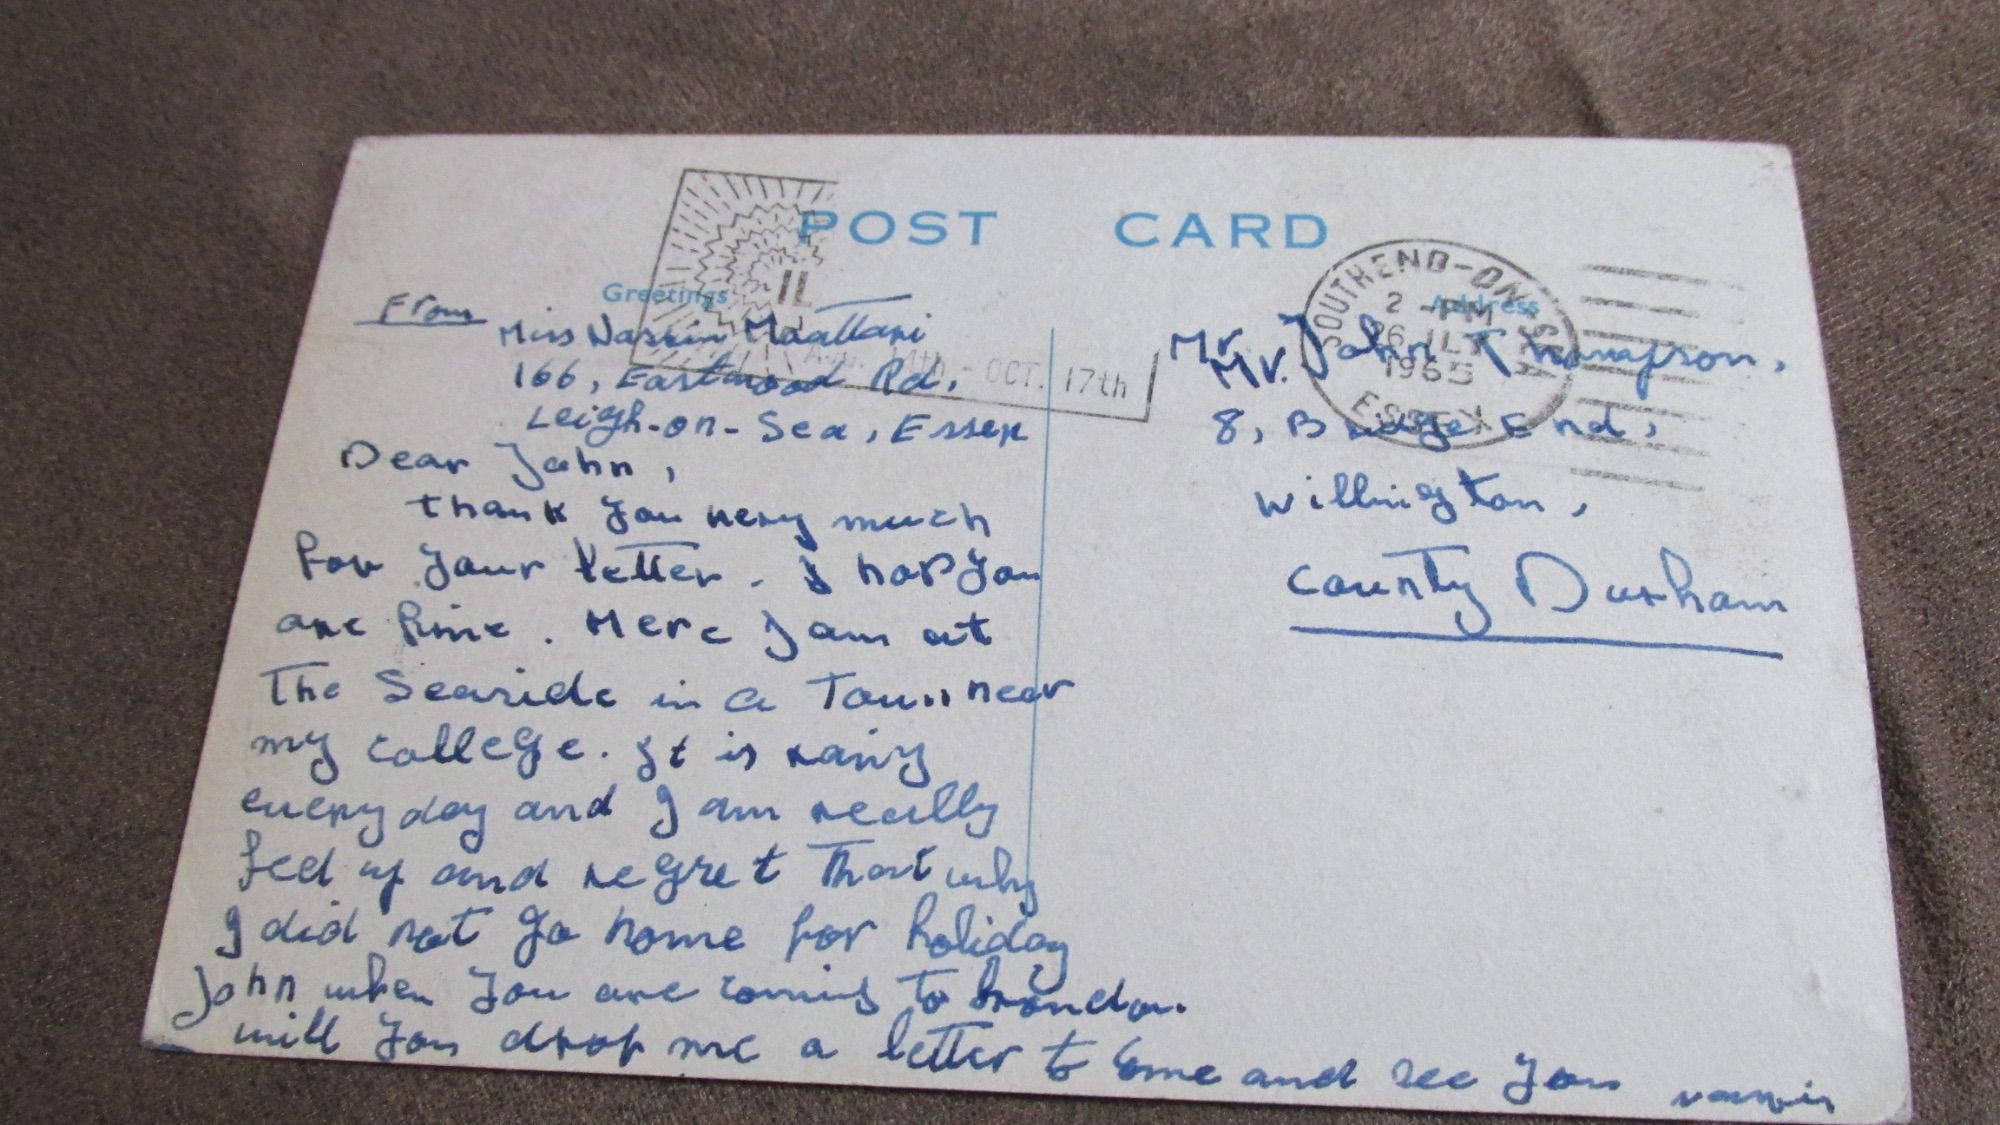 POST CARD
Greetings
Address
IL
14th - OCT. 17th
SOUTHEND-ON-SEA
2 - PM
26 JLY
1965
ESSEX
From
Miss Nasrin
166, Eastwood Rd,
Leigh-on-Sea, Essex
Dear John,
thank you very much
for your letter. I hop you
are fine. Here I am at
the Seaside in a Town near
my college. It is rainy
every day and I am really
feed up and regret that why
I did not go home for holiday
John when you are coming to London.
will you drop me a letter to come and see you nasrin
Mr. John Thompson,
Mr.
8, Bridge End,
Willington,
County Durham